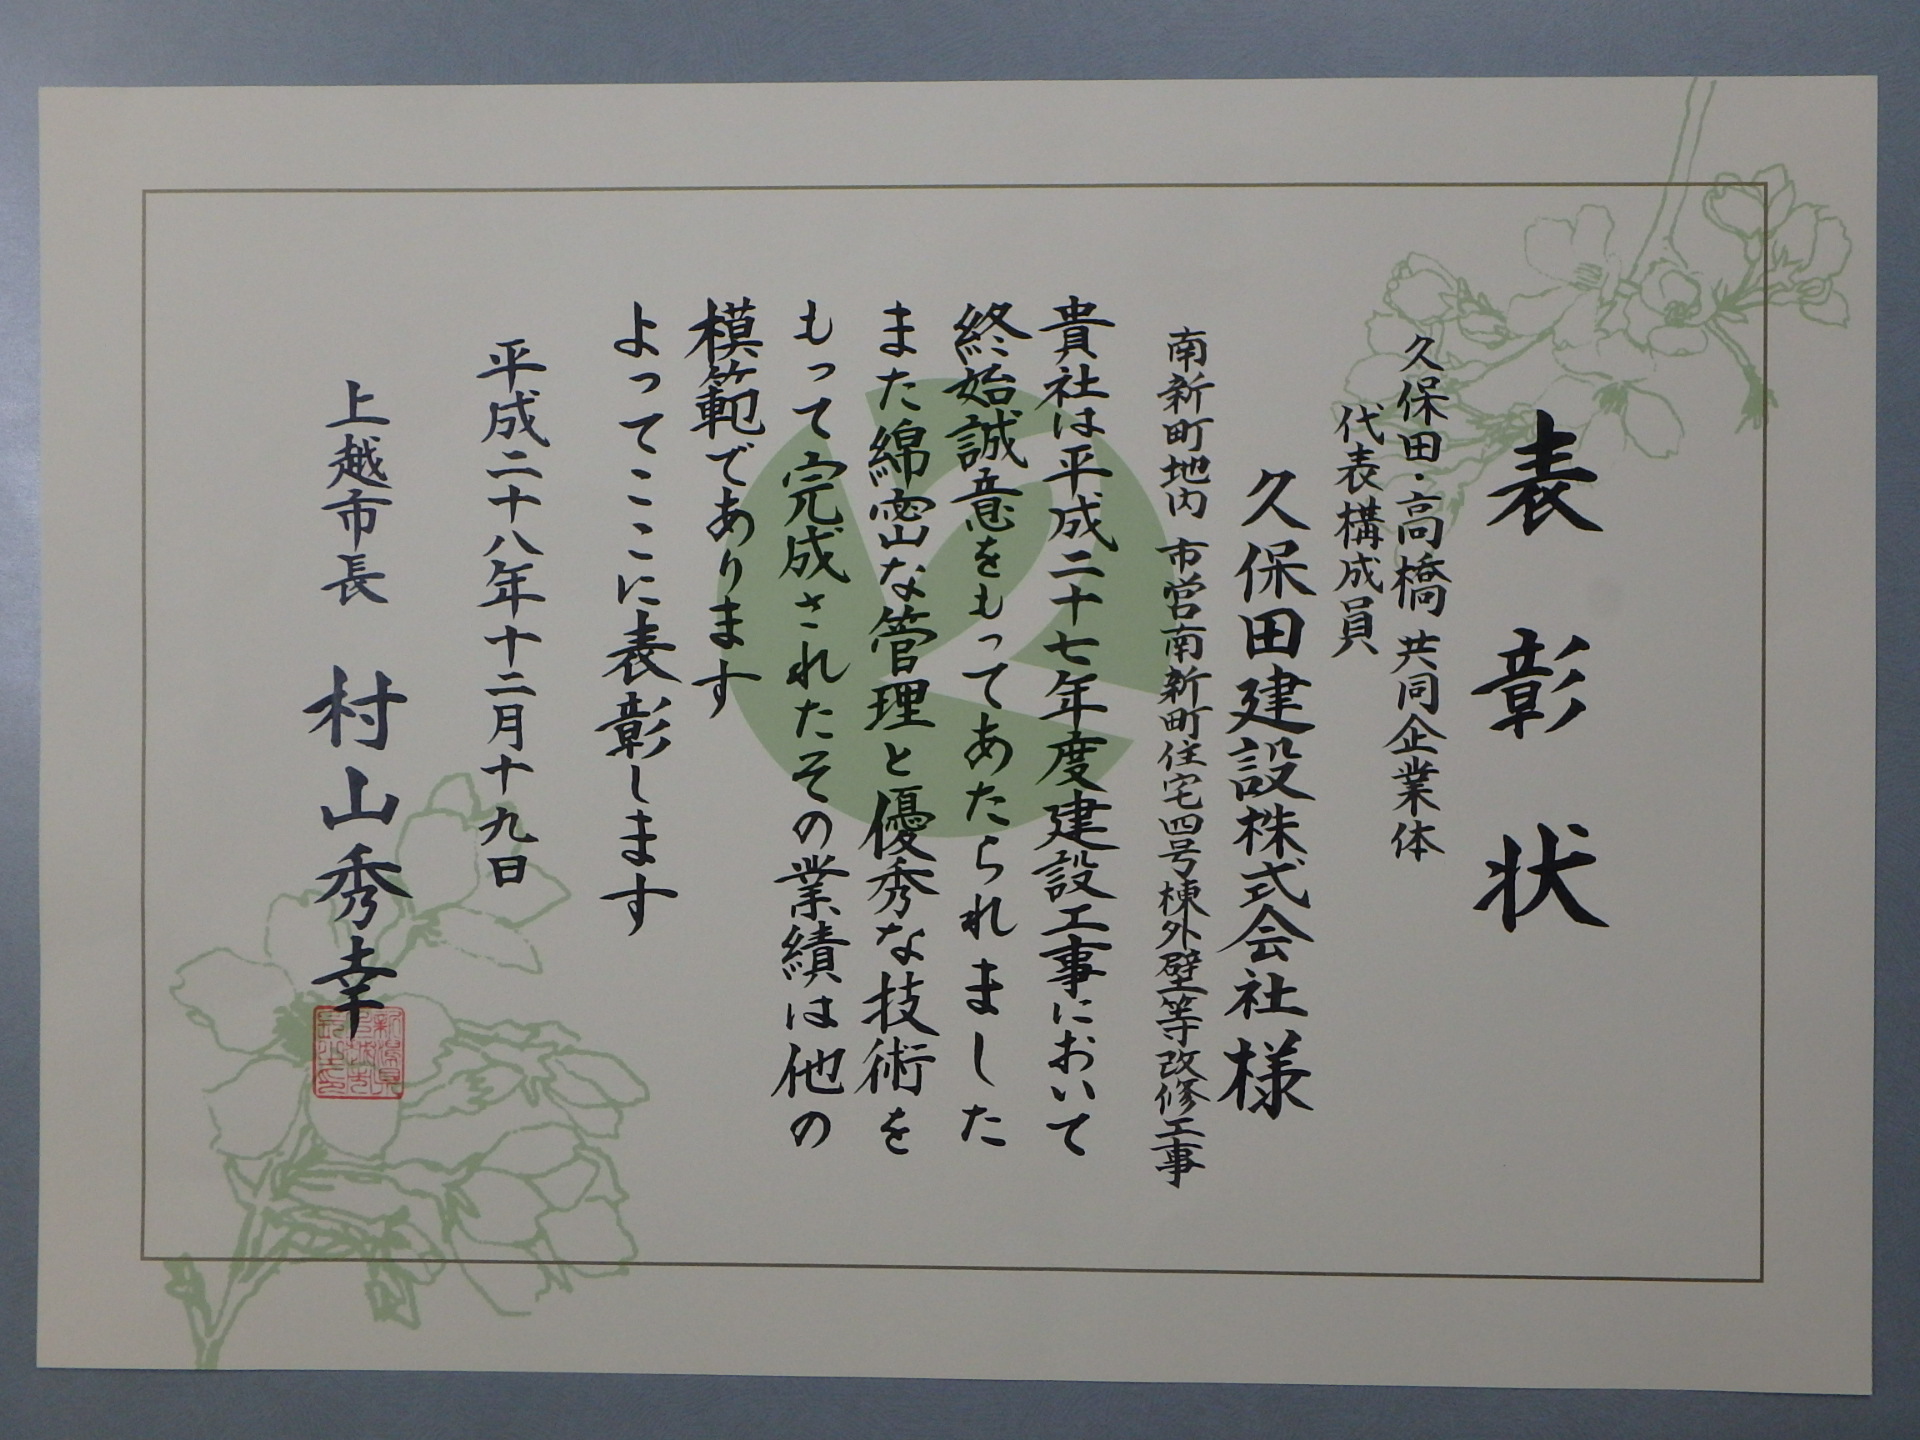 表彰状
久保田・高橋 共同企業体
代表構成員
久保田建設株式会社 様
南新町地内 市営南新町住宅四号棟外壁等改修工事
貴社は平成二十七年度建設工事において
終始誠意をもってあたられました
また綿密な管理と優秀な技術を
もって完成されたその業績は他の
模範であります
よってここに表彰します
平成二十八年十二月十九日
上越市長 村山秀幸
新潟県上越市長之印